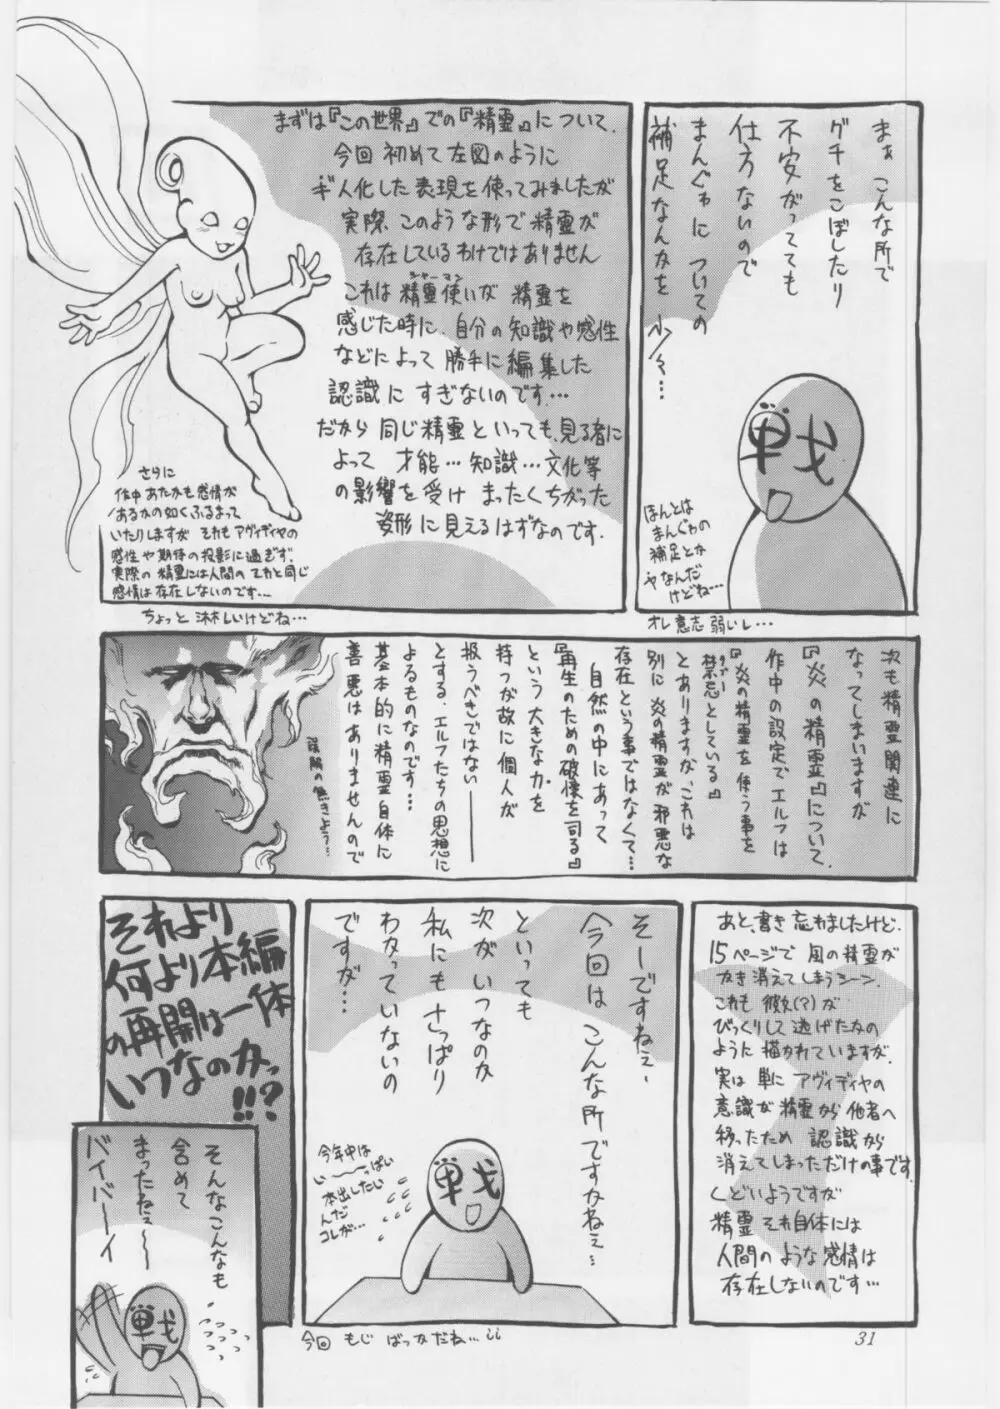 まぁ こんな所で
グチをこぼしたり
不安がってても
仕方ないので
まんがゎに ついての
補足なんかを
戦
ほんとは
まんがゎの
補足とか
ヤなんだ
けどね…
オレ意志弱いし…
まずは『この世界』での『精霊』について、
今回 初めて左図のように
ギ人化した表現を使ってみましたが
実際、このような形で精霊が
存在しているわけではありません
これは 精霊使いが 精霊を
シャーマン
感じた時に、自分の知識や感性
などによって 勝手に編集した
認識に すぎないのです…
だから 同じ精霊といっても、見る者に
よって 才能…知識…文化等
の影響を受け まったくちがった
姿形に見えるはずなのです。
さらに
作中 あたかも感情が
あるかの如くふるまって
いたりしますが それも アヴィディヤの
感性や期待の投影に過ぎず、
実際の精霊には人間のソレと同じ
感情は存在しないのです…
ちょっと 淋しいけどね…
次も精霊関連に
なってしまいますが
『炎の精霊』について、
作中の設定で エルフは
『炎の精霊を使う事を
禁忌としている』
タブー
とありますが、これは
別に 炎の精霊が 邪悪な
存在という事ではなくて…
自然の中にあって
『再生のための破壊を司る』
という 大きな力を
持つが故に 個人が
扱うべきではない――
とする、エルフたちの思想に
よるものなのです…
基本的に精霊自体に
善悪は ありませんので
あと、書き忘れましたけど、
15ページで 風の精霊が
かき消えてしまうシーン、
これも 彼女(?)が
びっくりして 逃げたかの
ように 描かれていますが、
実は 単に アヴィディヤの
意識が 精霊から 他者へ
移ったため 認識から
消えてしまっただけの事です、
くどいようですが
精霊 それ自体には
人間のような感情は
存在しないのです…
そーですねぇ、
今回は こんな所ですかねぇ…
といっても
次が いつなのか
私にも さっぱり
わかっていないの
ですが…
今年中は
い〜〜っぱい
本出したい
んだ
コレが…
戦
今回 もじ ばっかだね…
それより
何より本編
の再開は一体
いつなのかっ
!!?
そんなこんなも
含めて
まったねぇ〜〜
バイバーイ
戦
31